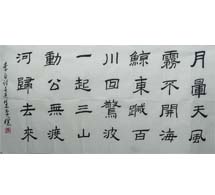 月暈天風
霧不開海
鯨東蹙百
川回驚波
一起三山
動公無渡
河歸去來